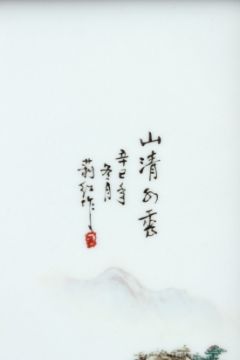 山清水雲
辛巳年
冬月
莉红作